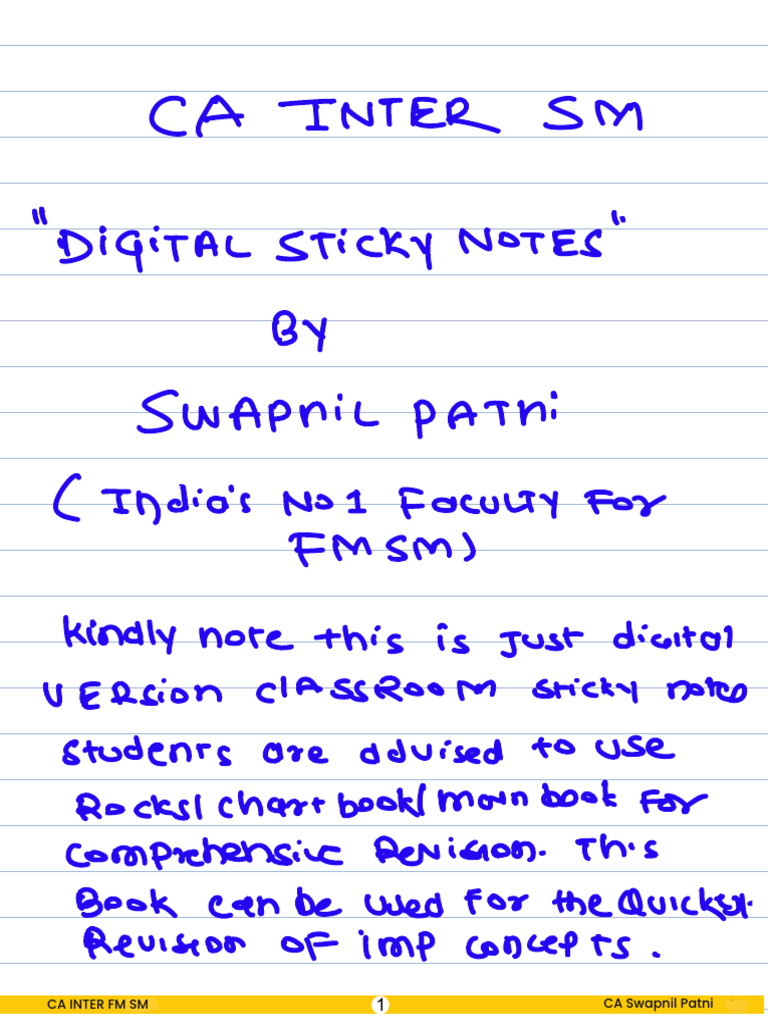 CA INTER SM
"DiGiTAL STicKy NOTES"
By
SWAPNiL PATni
(India's No 1 Faculty For
FM SM)
kindly note this is Just digital
VERsion clASSROOM sticky notes
students are advised to use
Rocks/ chart book/ main book For
comprehensive Revision. This
Book can be used For the Quickest
Revision OF imp concepts.
CA INTER FM SM 1 CA Swapnil Patni